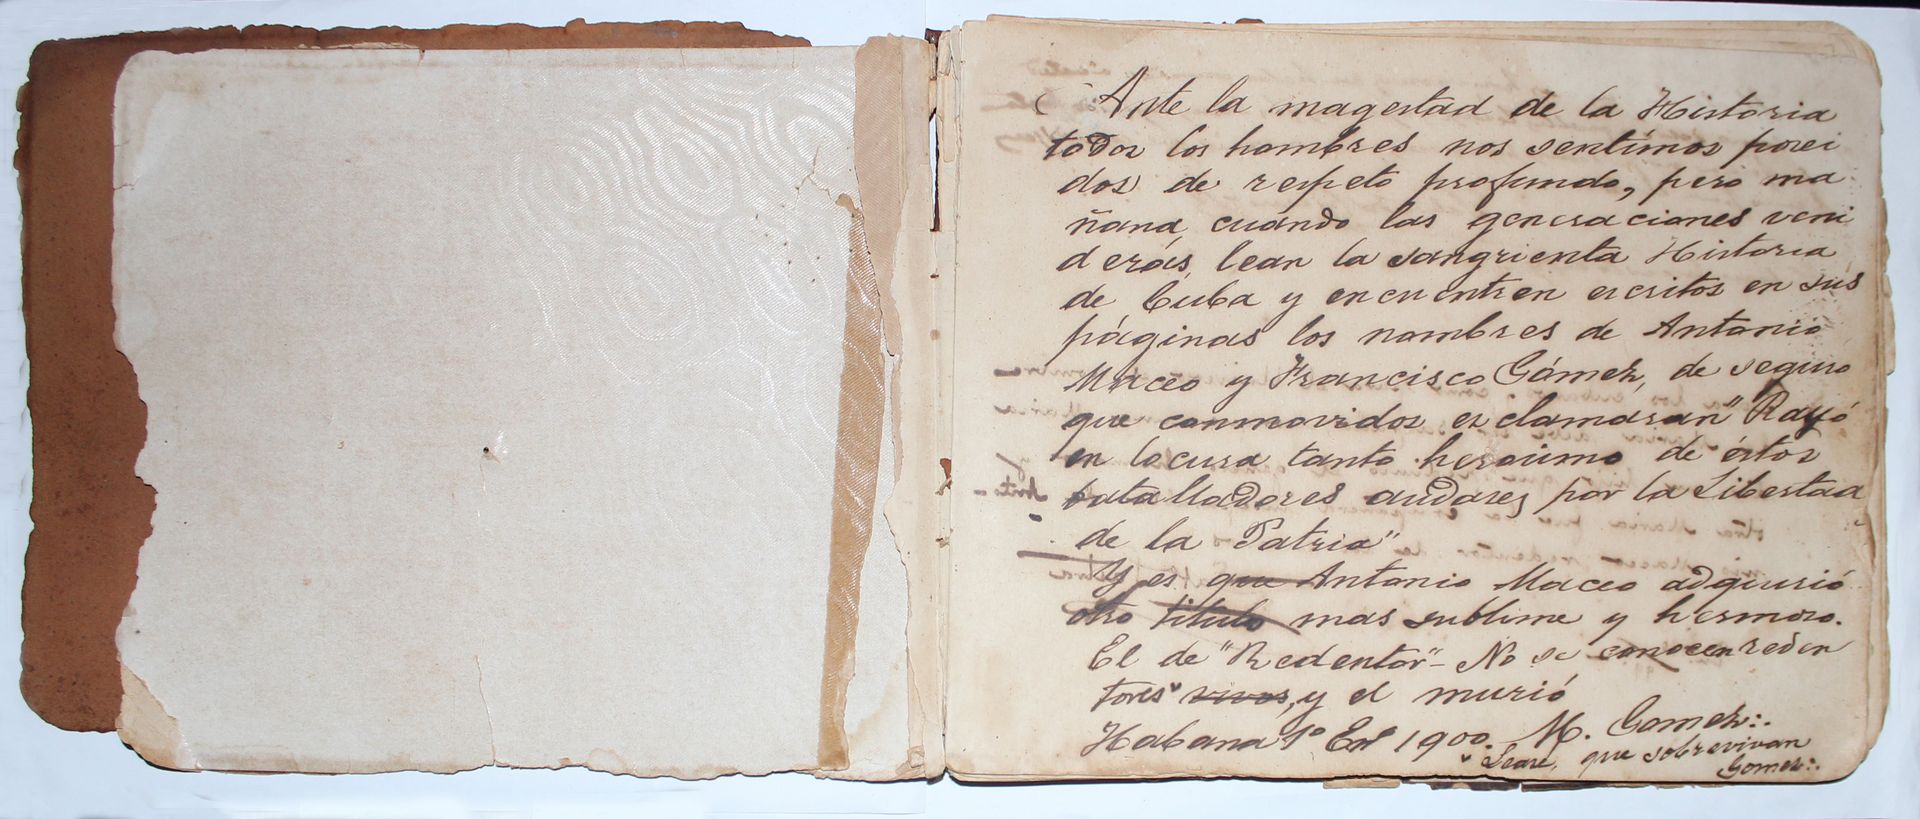 Ante la magestad de la Historia
todos los hombres nos sentimos posei
dos de respeto profundo, pero ma
ñana, cuando las generaciones veni
deras, lean la sangrienta Historia
de Cuba y encuentren escritos en sus
páginas los nombres de Antonio
Maceo y Francisco Gómez, de seguro
que conmovidos esclamaran "Rayó
en locura tanto heroismo de éstos
batalladores audares por la Libertad
de la Patria"
Y es que Antonio Maceo adquirió
otro titulo mas sublime y hermoso.
El de "Redentor" - No se conocen reden
tores vivos, y el murió
Habana 1º En 1900. M. Gomez:.
Lease, que sobrevivan
Gomez:.